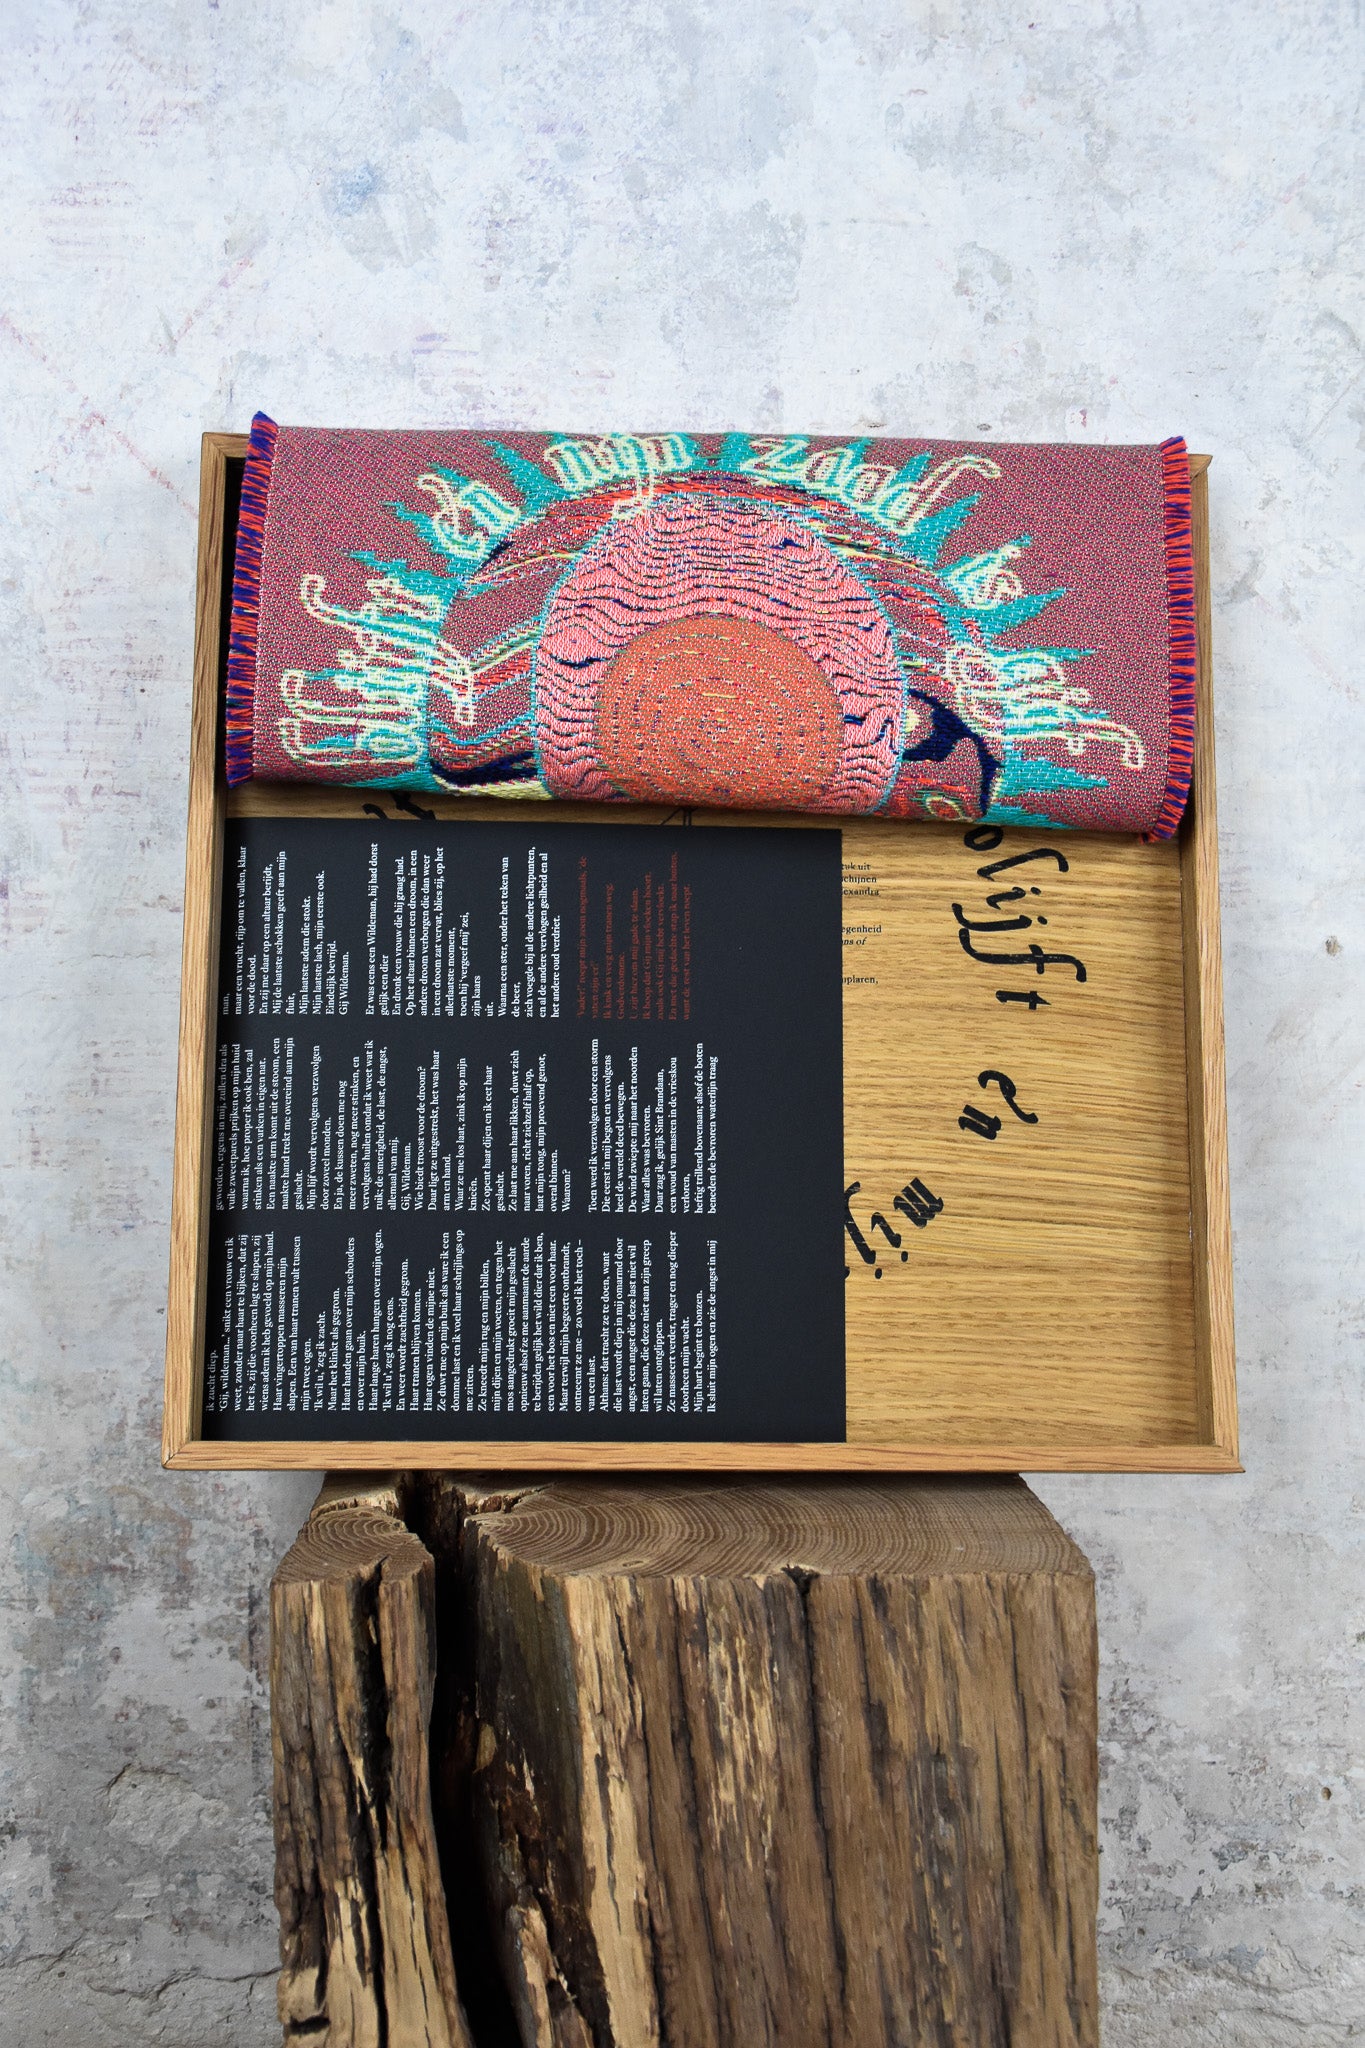 blijft en mijn zaad is
ik zucht diep.
‘Gij, wildeman...’ snikt een vrouw en ik
weet, zonder naar haar te kijken, dat zij
het is, zij die voorheen lag te slapen, zij
wiens adem ik heb gevoeld op mijn hand.
Haar vingertoppen masseren mijn
slapen. Een van haar tranen valt tussen
mijn twee ogen.
‘Ik wil u,’ zeg ik zacht.
Maar het klinkt als gegrom.
Haar handen gaan over mijn schouders
en over mijn buik.
Haar lange haren hangen over mijn ogen.
‘Ik wil u’, zeg ik nog eens.
En weer wordt zachtheid gegrom.
Haar tranen blijven komen.
Haar ogen vinden de mijne niet.
Ze duwt me op mijn buik als ware ik een
domme last en ik voel haar schrijlings op
me zitten.
Ze kneedt mijn rug en mijn billen,
mijn dijen en mijn voeten, en tegen het
mos aangedrukt groeit mijn geslacht
opnieuw alsof ze me aanmaant de aarde
te berijden gelijk het wild dier dat ik ben,
een voor het bos en niet een voor haar.
Maar terwijl mijn begeerte ontbrandt,
ontneemt ze me – zo voel ik het toch –
van een last.
Althans: dat tracht ze te doen, want
die last wordt diep in mij omarmd door
angst, een angst die deze last niet wil
laten gaan, die deze niet aan zijn greep
wil laten ontglippen.
Ze masseert verder, trager en nog dieper
doorheen mijn vacht.
Mijn hart begint te bonzen.
Ik sluit mijn ogen en zie de angst in mij
geworden, ergens in mij, zullen dra als
vuile zweetparels prijken op mijn huid
waarna ik, hoe proper ik ook ben, zal
stinken als een varken in eigen nat.
Een naakte arm komt uit de stoom, een
naakte hand trekt me overeind aan mijn
geslacht.
Mijn lijf wordt vervolgens verzwolgen
door zoveel monden.
En ja, de kussen doen me nog
meer zweten, nog meer stinken, en
vervolgens huilen omdat ik weet wat ik
ruik; de smerigheid, de last, de angst,
allemaal van mij.
Gij, Wildeman.
Wie biedt troost voor de droom?
Daar ligt ze uitgestrekt, het was haar
arm en hand.
Waar ze me los laat, zink ik op mijn
knieën.
Ze opent haar dijen en ik eet haar
geslacht.
Ze laat me aan haar likken, duwt zich
naar voren, richt zichzelf half op,
laat mijn tong, mijn proevend genot,
overal binnen.
Waarom?
Toen werd ik verzwolgen door een storm
Die eerst in mij begon en vervolgens
heel de wereld deed bewegen.
De wind zwiepte mij naar het noorden
Waar alles was bevroren.
Daar zag ik, gelijk Sint Brandaan,
een woud van masten in de vrieskou
verloren,
heftig trillend bovenaan; alsof de boten
beneden de bevroren waterlijn traag
man,
maar een vrucht, rijp om te vallen, klaar
voor de dood.
En zij me daar op een altaar berijdt,
Mij de laatste schokken geeft aan mijn
fluit,
Mijn laatste adem die stokt.
Mijn laatste lach, mijn eerste ook.
Eindelijk bevrijd.
Gij Wildeman.
Er was eens een Wildeman, hij had dorst
gelijk een dier
En dronk een vrouw die hij graag had.
Op het altaar binnen een droom, in een
andere droom verborgen die dan weer
in een droom zat vervat, blies zij, op het
allerlaatste moment,
toen hij ‘vergeef mij’ zei,
zijn kaars
uit.
Waarna een ster, onder het teken van
de beer,
zich voegde bij al de andere lichtpunten,
en al de andere vervlogen geilheid en al
het andere oud verdriet.
‘Vader!’, roept mijn zoon nogmaals, ‘de
vaten zijn er!’
Ik knik en veeg mijn tranen weg.
Godverdomme.
U zijt hier om mij gade te slaan.
Ik hoop dat Gij mijn vloeken hoort,
zoals ook Gij mij hebt vervloekt.
En met die gedachte stap ik naar buiten,
want de rest van het leven roept.
tuk uit
schijnen
lexandra
egenheid
ns of
uplaren,
blijft en mij